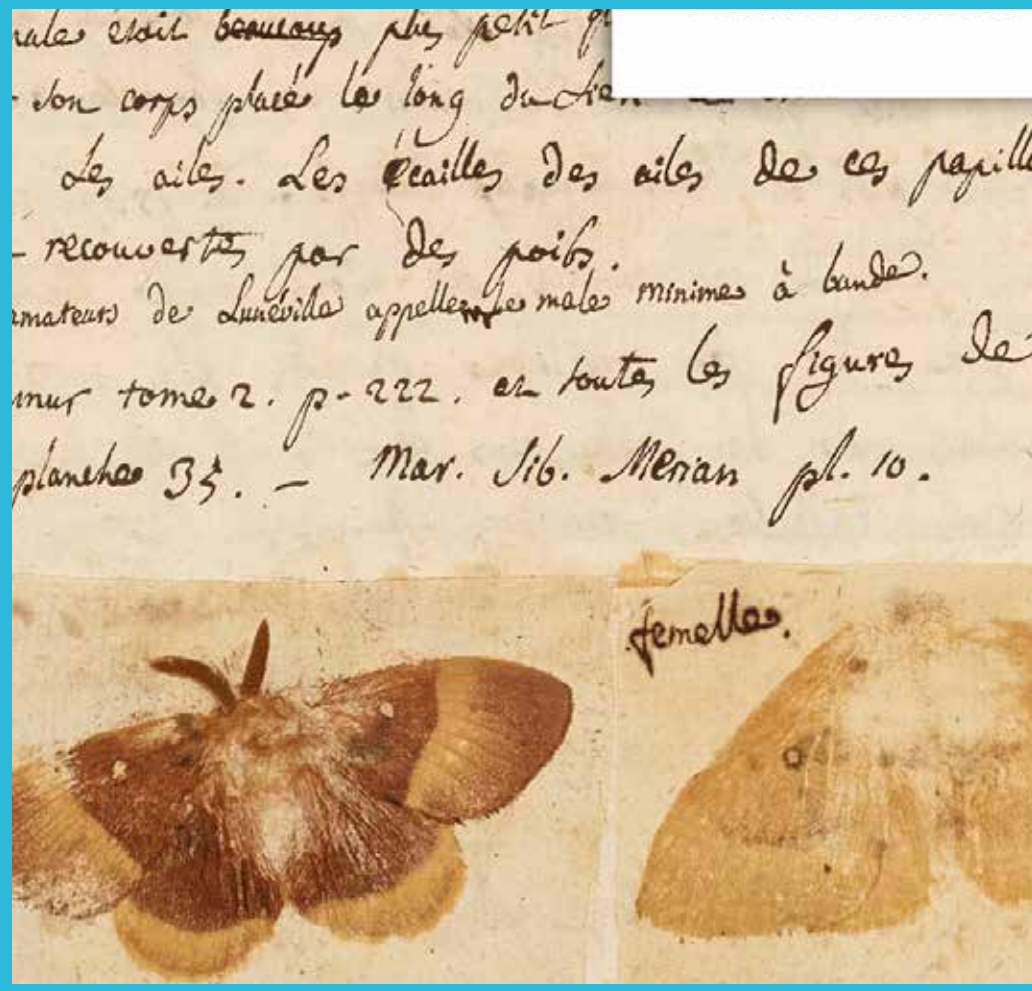 male étoit beaucoup plus petit
son corps placé le long du sien
Les ailes. Les écailles des ailes de ces papill
recouvertes par des poils.
amateurs de Lunéville appellent le male minime à bande.
mur tome 2. p. 222. et toutes les figures de
planche 35. — Mar. Sib. Merian pl. 10.
femelle.